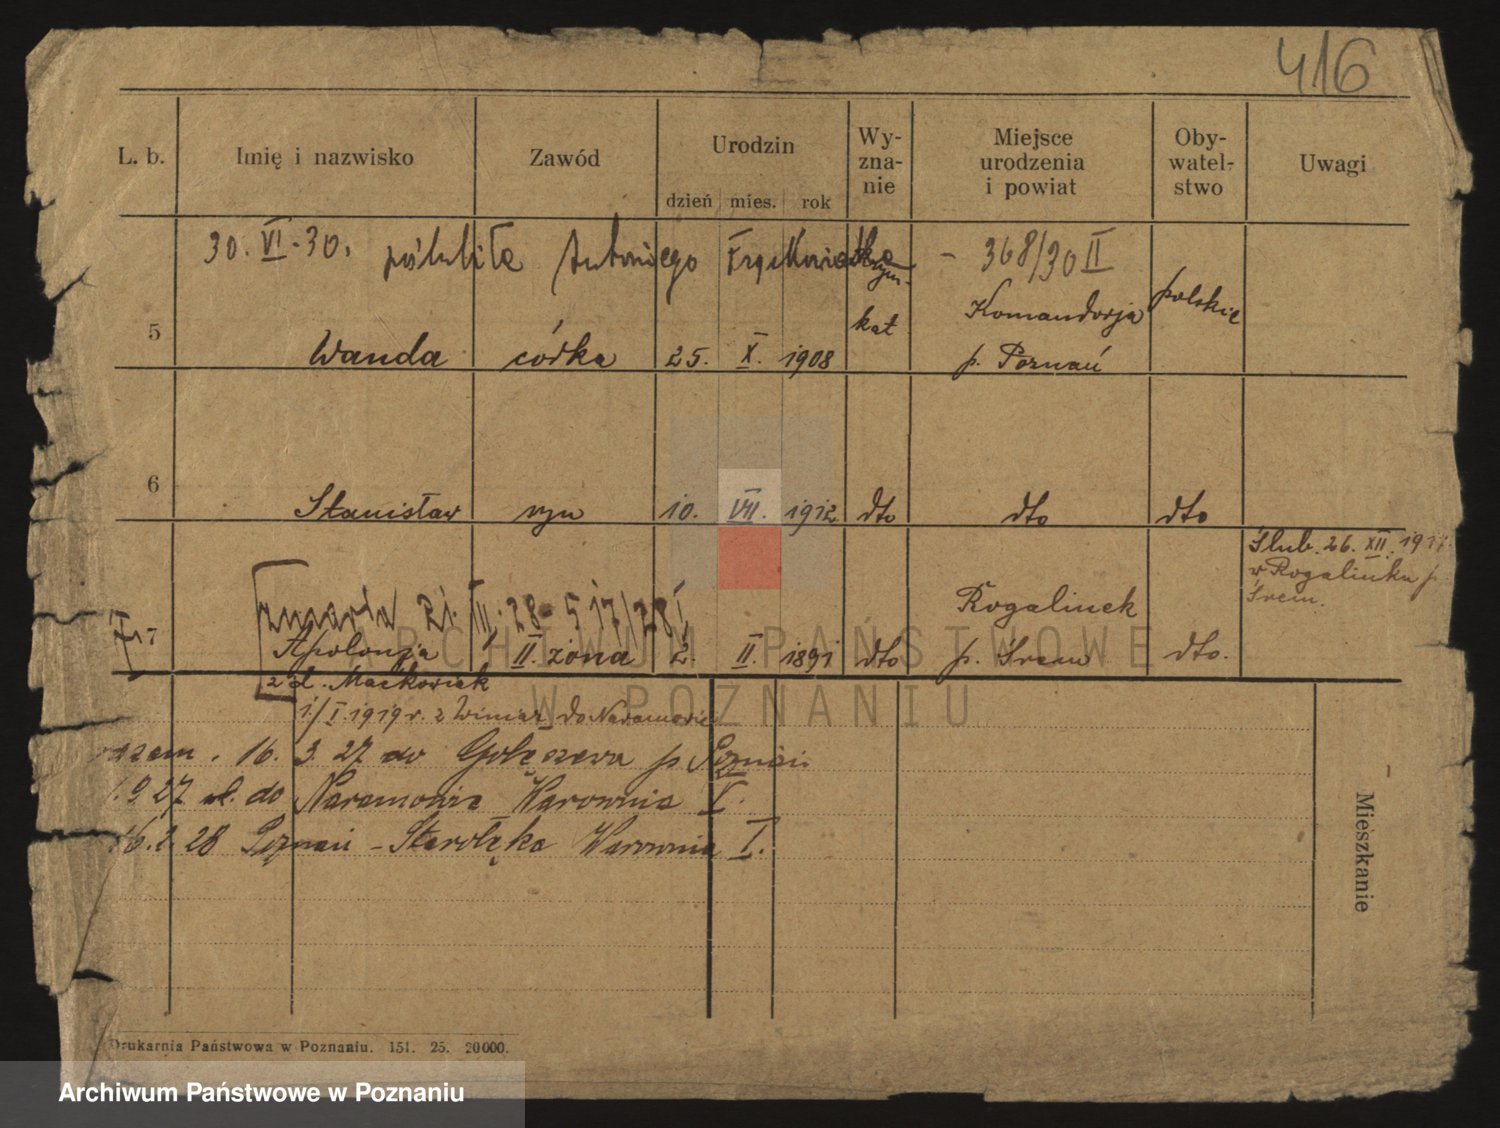 416
L. b. Imię i nazwisko Zawód Urodzin Wy-zna-nie Miejsce urodzenia i powiat Oby-watel-stwo Uwagi
dzień mies. rok
30. VI. 30. póślubiła Antoniego Frąckowiaka - 368/30 II
5 Wanda córka 25. X. 1908 rzym. kat Komandorja p. Poznań polskie
6 Stanisław syn 10. VII. 1912 dto dto dto
Ślub. 26. XII. 1917.
w Rogalinku p.
Śrem.
zmarła 21. III. 28 - 517/28 I
7 Apolonja II. żona 2. II. 1891 dto Rogalinek p. Śrem dto.
z d. Maćkowiak
1/I. 1919 r. z Winiar do Naramowic
16. 3. 27 do Golęczewa p Poznań
9 27 do Naramowic Warownia V.
16. 2. 28 Poznań - Starołęka Warownia I.
Mieszkanie
Drukarnia Państwowa w Poznaniu. 151. 25. 20000.
ARCHIWUM PAŃSTWOWE
W POZNANIU
Archiwum Państwowe w Poznaniu